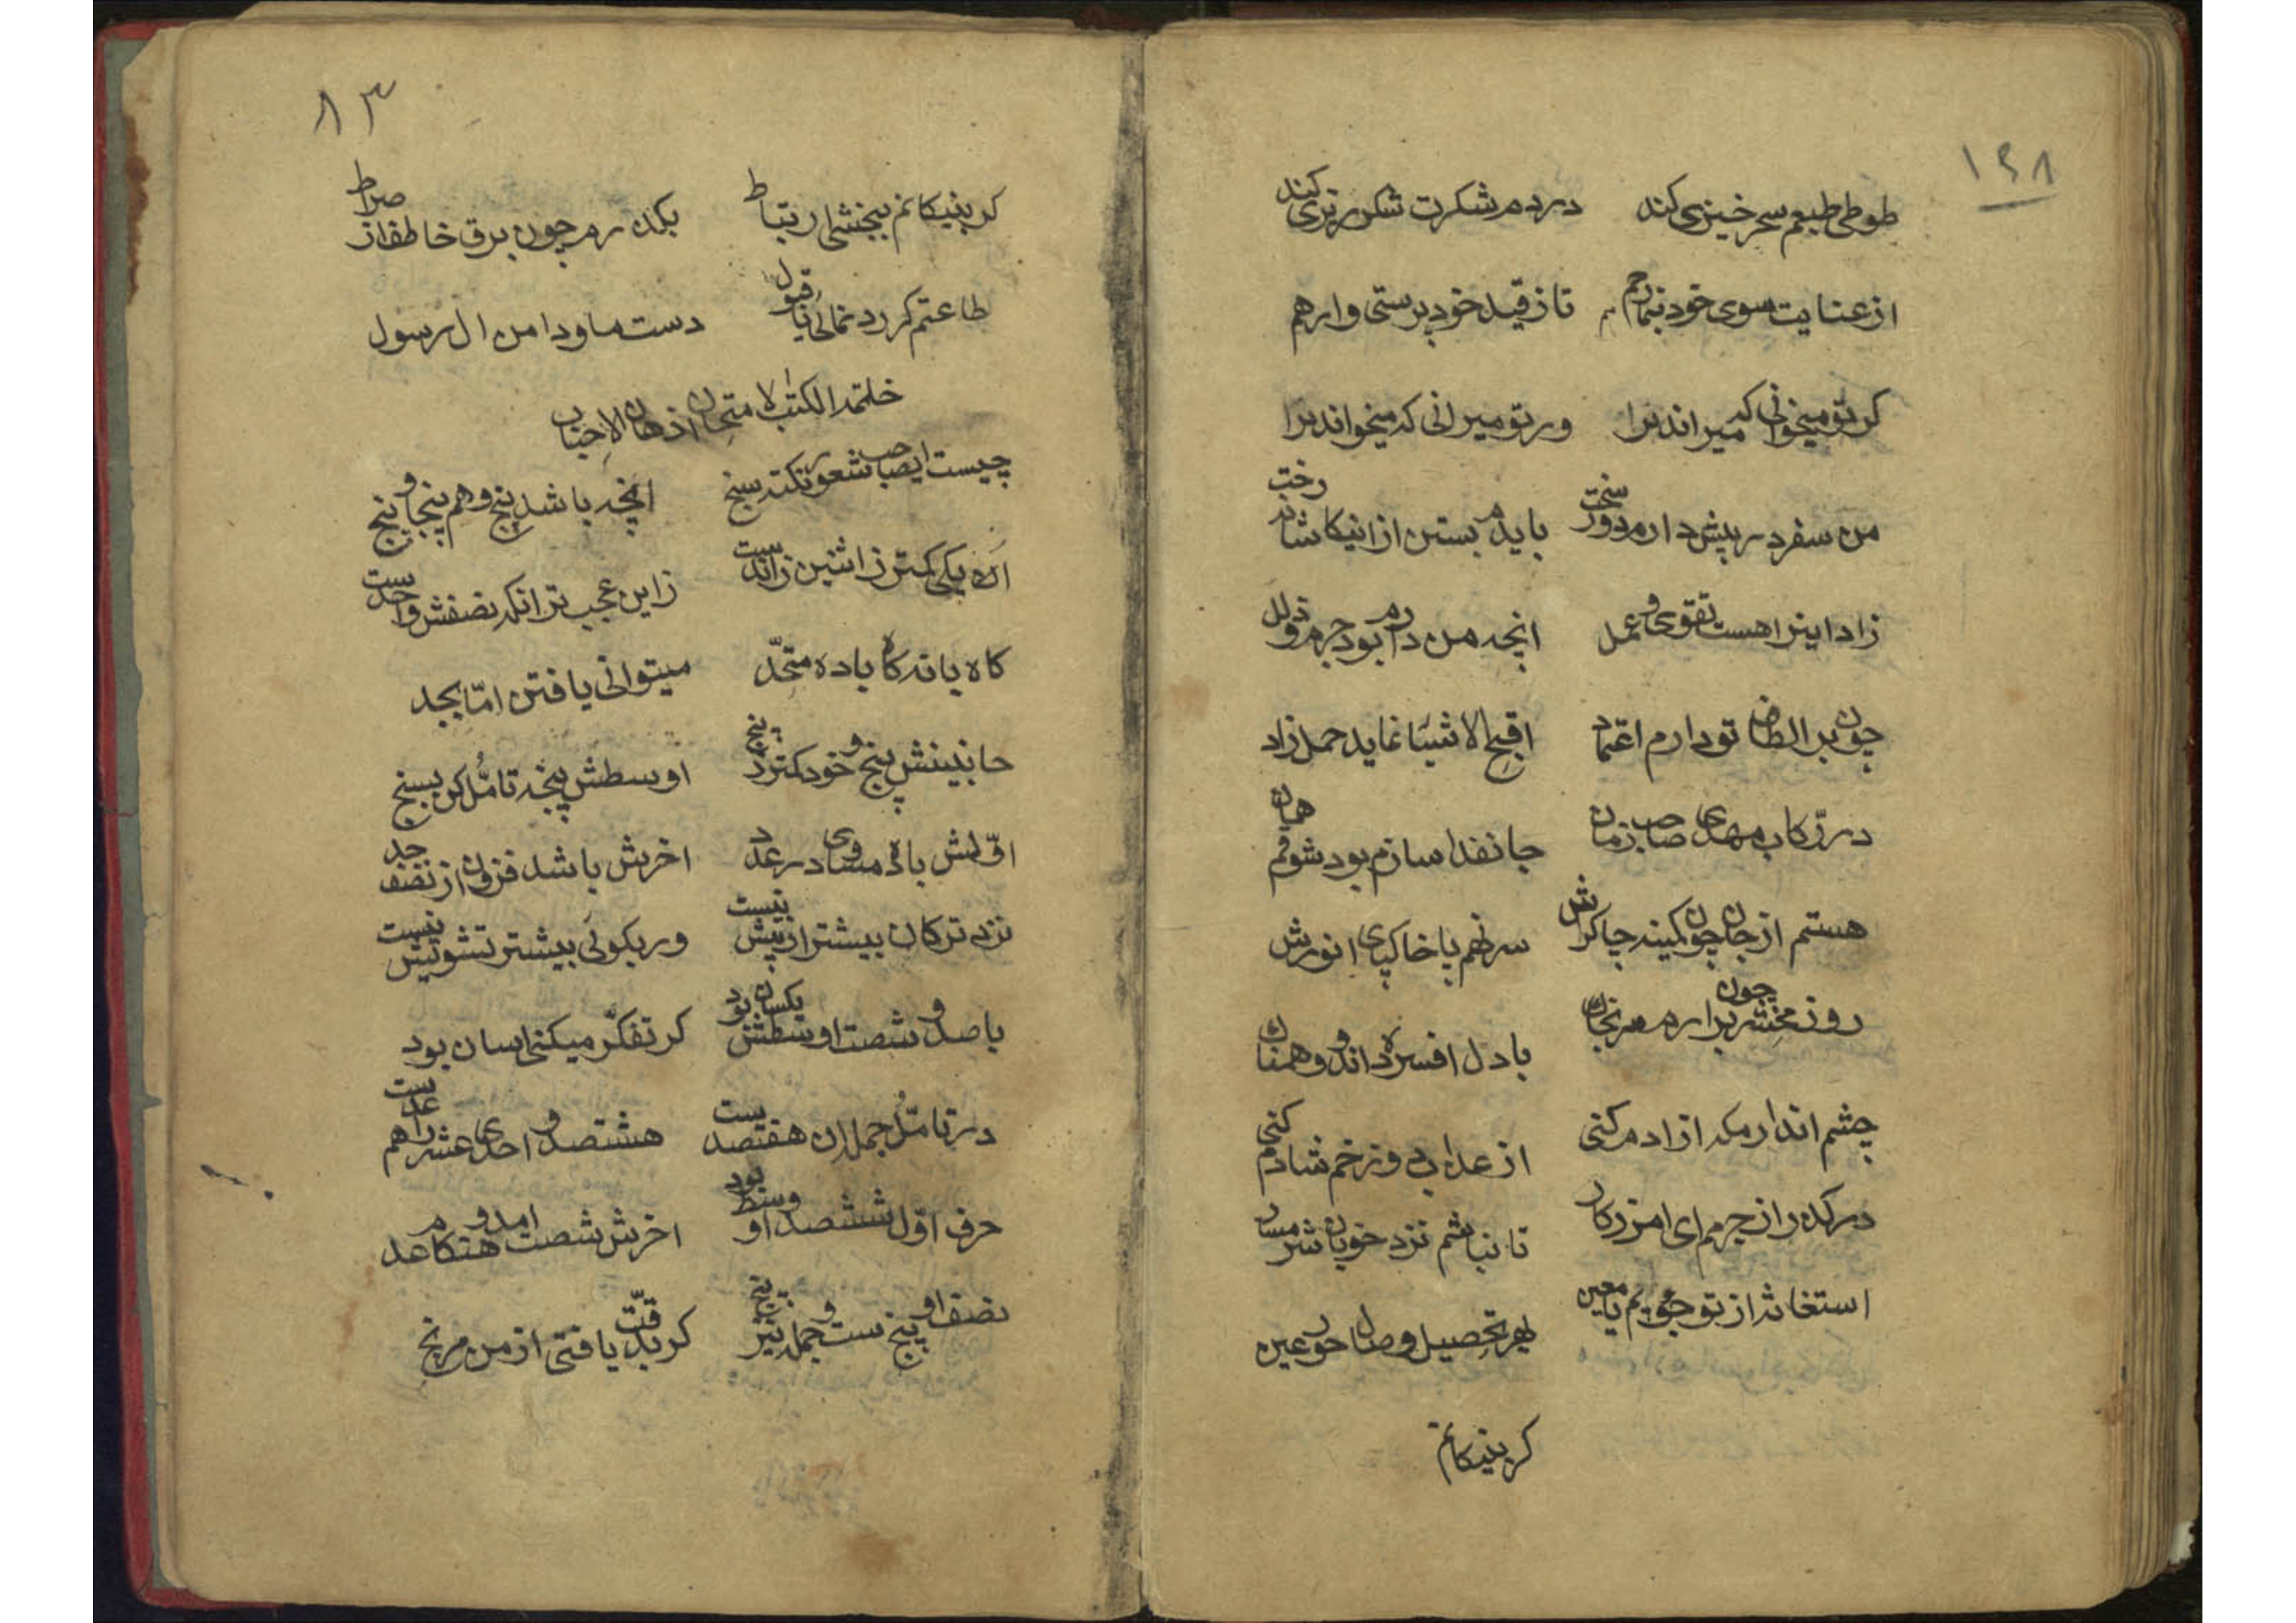 ۱۶۸
طوطی طبعم سحر خیزی کند در دم شکرت شکر ریزی کند
از عنایت سوی خود بنما رهم تا ز قید خود پرستی وارهم
کر تو میخوانی که میراند مرا ور تو میرانی که میخواند مرا
من سفر در پیش دارم دور سخت بایدم بستن از اینکاشانه رخت
زاد اینراهست تقوی و عمل انچه من دارم بود جرم و زلل
چون بر الطاف تو دارم اعتماد اقبح الاشیا نماید حمل زاد
در رکاب مهدی صاحب زمان جانفدا سازم بود شوقم همان
هستم از جان چون کمینه چاکرش سر نهم با خاکپای انورش
روز محشر چون برارم سر بخاک با دل افسرده و اندوهناک
چشم اندارم که ازادم کنی از عذاب دوزخم شادم کنی
درکذر از جرمم ای امرزکار تا نباشم نزد خوبان شرمسار
استغاثه از تو جویم یا معین بهر تحصیل وصال حور عین
کر بنیکانم
۸۳
کر بنیکانم ببخشی ارتباط بکذرم چون برق خاطف از صراط
طاعتم کر رد نمائی یا قبول دست ما و دامن ال رسول
خاتمة الکتاب لامتحان اذهان الاحباب
چیست ایصاحب شعور نکته سنج انچه باشد پنج و هم پنجاه و پنج
اَن یکی کمتر ز اثنین زائدست زاین عجب تر انکه نصفش واحدست
کاه با نه کاه با ده متحّد میتوانی یافتن امّا بجد
جانبینش پنج و خود کمتر ز پنج اوسطش پنجه تامُّل کن بسنج
اوّلش با ده مساوی در عدد اخرش باشد فزون از نصف حد
نزد ترکان بیشتر از بیش نیست ور بکوئی بیشتر تشویش نیست
با صد و شصت اوسطش یکسان بود کر تفکّر میکنی اسان بود
در تامُّل جمله ان هفتصدست هشتصد و احدی عشر راهم عدست
حرف اوّل ششصد او وسط بود اخرش شصت امد و هنکام عد
نصف او پنج ست و جمله نیز پنج کر بدقّت یافتی از من مرنج